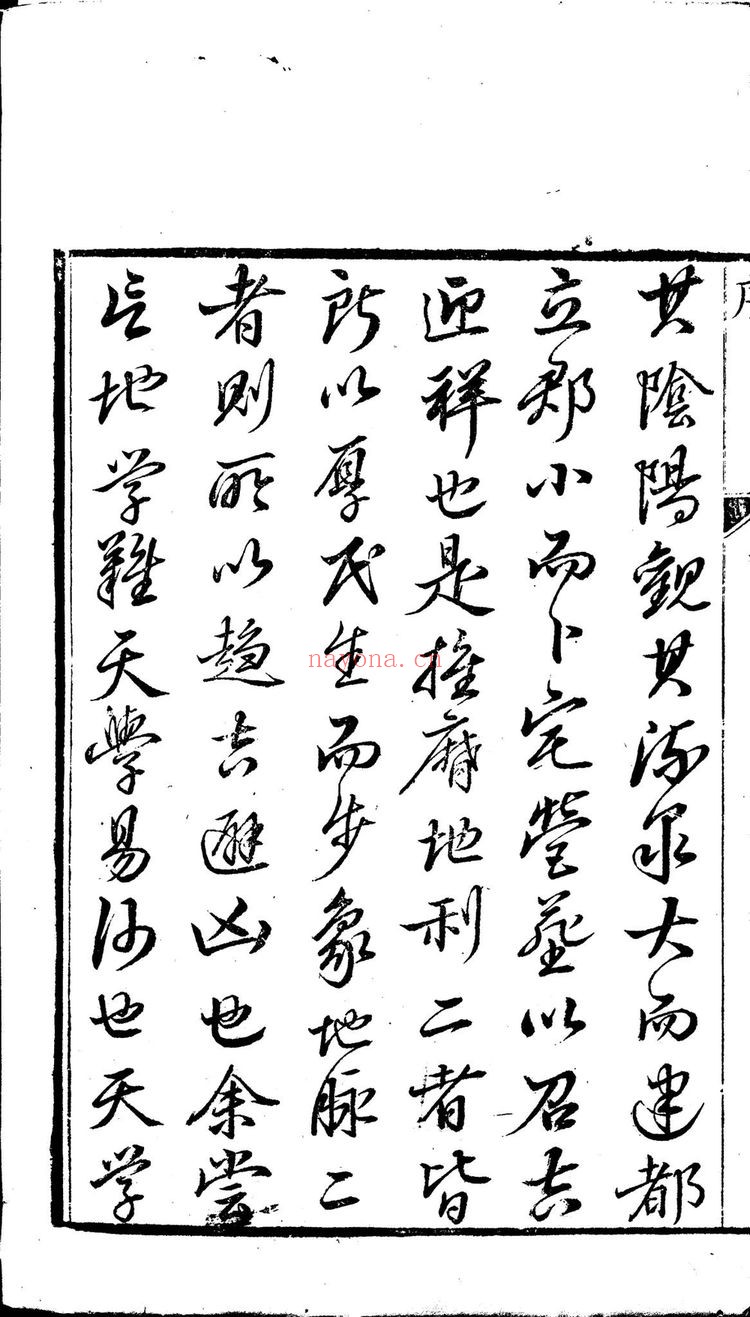 其陰陽觀其流泉大而建都
立郡小而卜宅營塟以召吉
迎祥也是推曆地利二者皆
所以厚民生而步象地脉二
者則所以趨吉避凶也余嘗
言地学難天學易何也天学
nayona.cn